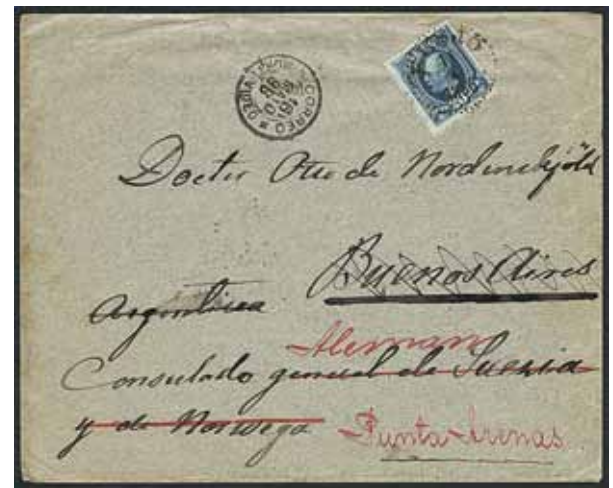 CORREO
Doctor Otto de Nordenskjöld
Buenos Aires
Argentina
Aleman
Consulado general de Suecia
y de Norwega
Punta-Arenas